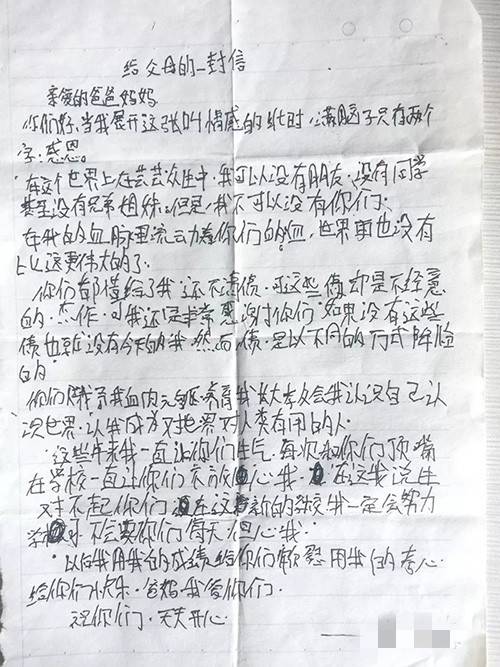 给父母的一封信
亲爱的爸爸妈妈
你们好，当我展开这张叫情感的 时，满脑子只有两个
字：感恩。
在这个世界上在芸芸众生中，我可以没有朋友，没有同学
甚至没有兄弟姐妹。但是，我不可以没有你们。
在我的血脉里流动着你们的血，世界 也没有
比这更伟大的了。
你们都借给了我还不清债，可这些债却是不经意
的。杰作，可我还是 你们 如果没有这些
债也就没有今天的我，然而债，是以不同的方式降临
的
你们赐予我血肉之躯 我长大教会我认识自己认
识世界，让我成为对世界对人类有用的人
这些年来我一直让你们生气，每次和你们顶嘴
在学校一直让你们不放心我。在这我说生
对不起你们 在这 新的学校我一定会努力
学 不会要你们每天但心我。
以后我用我的成绩给你们 用我的孝心
给你们 乐。爸妈我爱你们。
祝你们，天天开心